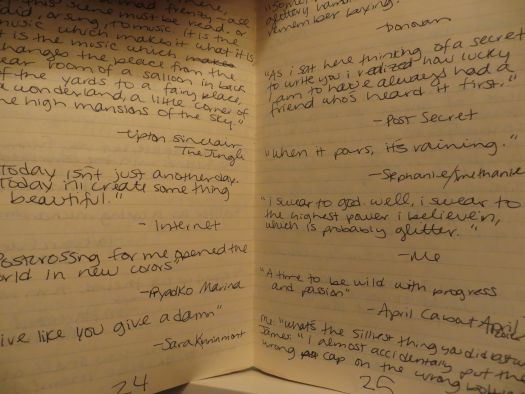 this scene must be read, or
said, or sung, to music. It is the
music which makes it what it is
it is the music which
changes the place from the
rear room of a saloon in back
of the yards to a fairy place,
a wonderland, a little corner of
the high mansions of the sky."
-Upton Sinclair
The Jungle
Today isn't just another day.
Today i'll create something
beautiful."
- Internet
Postcrossing for me opened the
world in new colors"
-Ryadko Marina
ive like you give a damn"
-Sara
24
remember boxing."
-Donovan
"As i sat here thinking of a secret
to write you i realized how lucky
i am to have always had a
friend who's heard it first."
-Post Secret
"when it pours, it's raining."
-Sephanie/Smethanie
"i swear to god. well, i swear to
the highest power i believe in,
which is probably glitter."
-Me
"A time to be wild with progress
and passion"
-April
Me: "what's the silliest thing you did
James: "i almost accidentally put the
wrong cap on the wrong
25